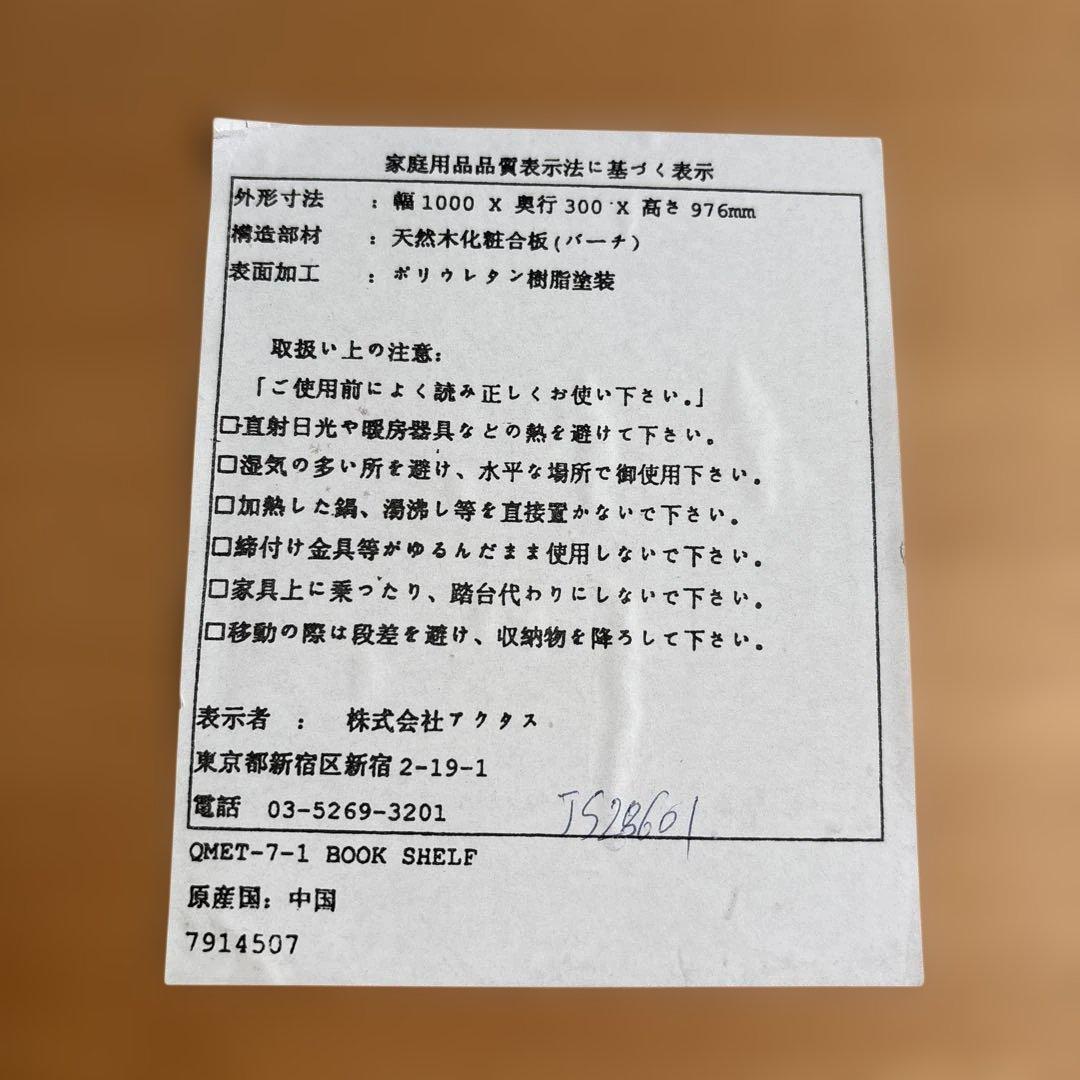 家庭用品品質表示法に基づく表示
外形寸法 : 幅1000 X 奥行300 X 高さ 976mm
構造部材 : 天然木化粧合板(バーチ)
表面加工 : ポリウレタン樹脂塗装
取扱い上の注意:
「ご使用前によく読み正しくお使い下さい。」
□直射日光や暖房器具などの熱を避けて下さい。
□湿気の多い所を避け、水平な場所で御使用下さい。
□加熱した鍋、湯沸し等を直接置かないで下さい。
□締付け金具等がゆるんだまま使用しないで下さい。
□家具上に乗ったり、踏台代わりにしないで下さい。
□移動の際は段差を避け、収納物を降ろして下さい。
表示者 : 株式会社アクタス
東京都新宿区新宿2-19-1
電話 03-5269-3201
JS28601
QMET-7-1 BOOK SHELF
原産国: 中国
7914507